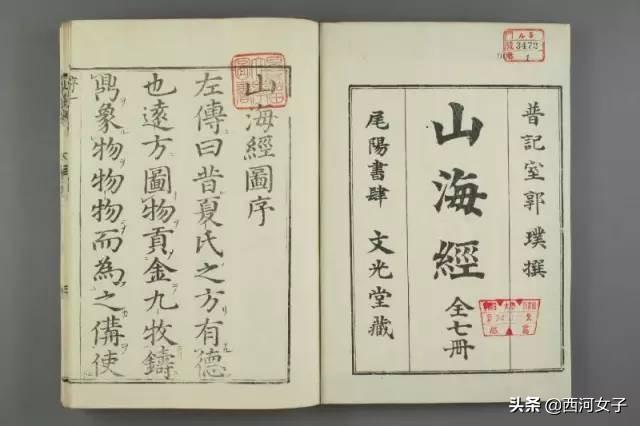 晉記室郭璞撰
山海經
全七冊
尾陽書肆 文光堂藏
3472
1
山海經圖序
左傳曰昔夏氏之方有德
也遠方圖物貢金九牧鑄
鼎象物物物而為之備使
头条 @西河女子